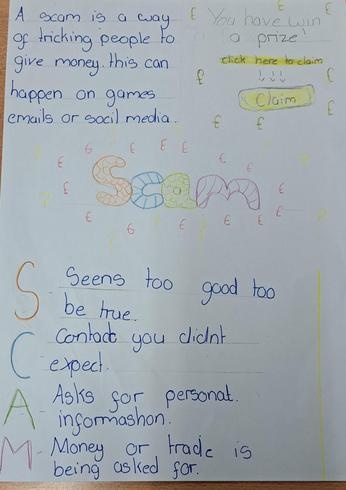 A scam is a way
of tricking people to
give money. this can
happen on games
emails or socil media.
You have win
a prize!
click here to claim
Claim
Scam
S - Seens too good too
be true.
C - Contact you didnt
expect.
A - Asks for personal.
informashon.
M - Money or trade is
being asked for.